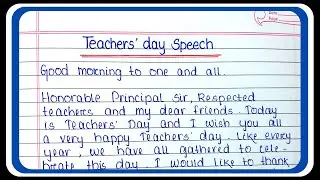 Teachers' day Speech
Good morning to one and all.
Honorable Principal Sir, Respected
teachers and my dear friends. Today
is Teachers' Day and I wish you all
a very happy Teachers' day. Like every
year, we have all gathered to cele-
brate this day. I would like to thank